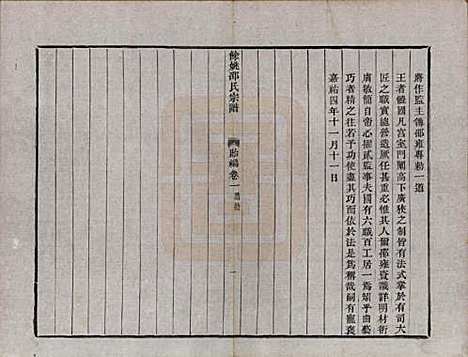 將作監主簿邵雍專勅一道
王者儀國凡宮室門闕高下廣狹之制皆有法式掌於有司大
匠之職實總營造厥任甚重必惟其人爾邵雍資識詳明材術
膚敏簡自帝心擢貳監事夫國有六職百工居一焉矧乎曲藝
巧者精之住若可使盡其巧而依於法是爲稱哉嗣有寵袠
嘉祐四年十一月十一日
餘姚邵氏宗譜
貽編卷一
一